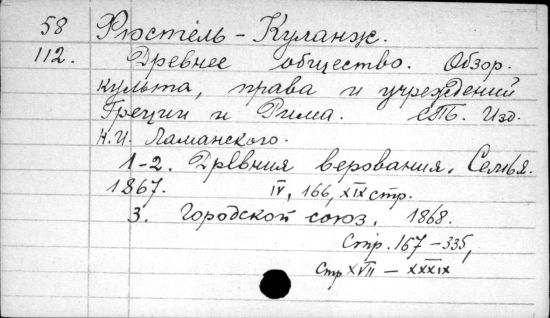 58 Фюстель-Куланж.
112. Древнее общество. Обзор.
культа, права и учреждений
Греции и Рима. СПб. Изд.
Н.И. Ламанского.
1-2. Древния верования. Семья.
1867. IV, 166, XIX стр.
3. Городской союз. 1868.
Стр. 167-335,
Стр XVII - XXXIX